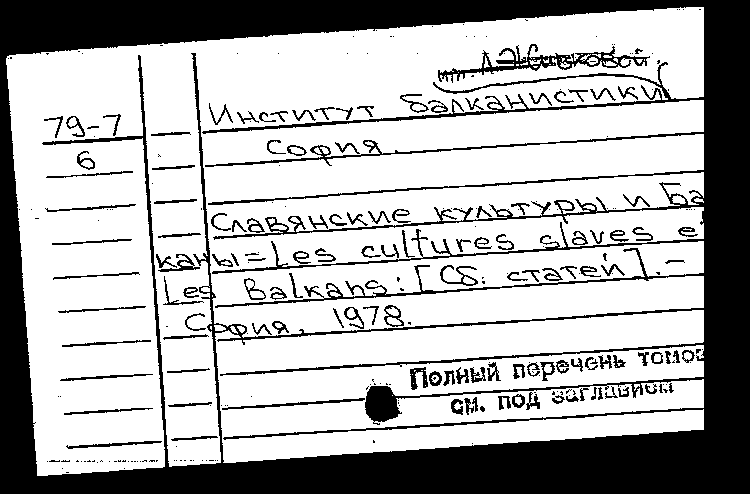 им. Л. Живковой
79-7
Институт балканистики
6
София.
Славянские культуры и Ба
каны = Les cultures slaves e
Les Balkans: [Сб. статей]. –
София, 1978.
Полный перечень томов
см. под заглавием